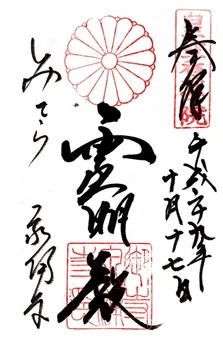 奉拝
平成二十九年
十月十七日
霊明殿
みてら
泉涌寺